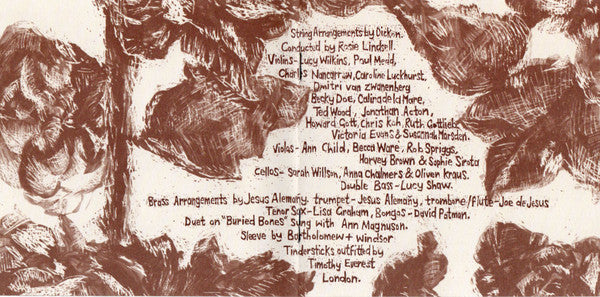 String Arrangements by Dickon.
Conducted by Rosie Lindsell.
Violins - Lucy Wilkins, Paul Medd,
Charles Nancarrow, Caroline Luckhurst,
Dmitri van Zwanenberg
Becky Doe, Calina de la Mare,
Ted Wood, Jonathan Acton,
Howard Gott, Chris Koh, Ruth Gottlieb,
Victoria Evans & Susannah Marsden.
Violas - Ann Child, Becca Ware, Rob Spriggs,
Harvey Brown & Sophie Sirota
Cellos - Sarah Willson, Anna Chalmers & Oliver Kraus.
Double Bass - Lucy Shaw.
Brass Arrangements by Jesus Alemany. trumpet - Jesus Alemañy, trombone/flute - Joe de Jesus
Tenor Sax - Lisa Graham, Bongos - David Patman.
Duet on "Buried Bones" sung with Ann Magnuson.
Sleeve by Bartholomew + Windsor
Tindersticks outfitted by
Timothy Everest
London.